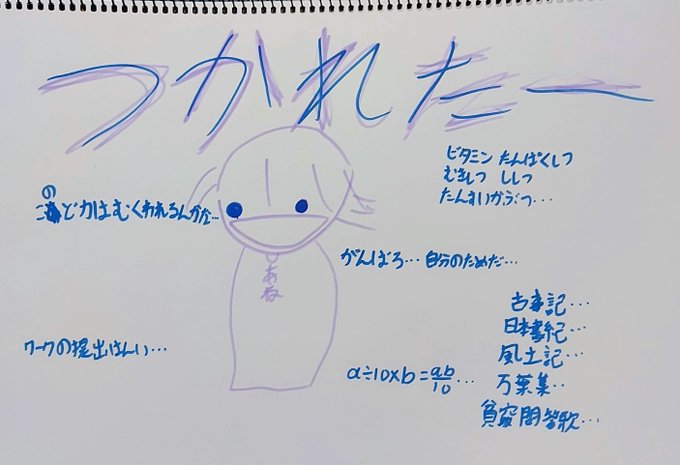 つかれたー
ビタミン たんぱくしつ
むきしつ ししつ
たんすいかぶつ…
このど力はむくわれるんかな…
がんばろ…自分のためだ…
あね
古事記…
日本書紀…
風土記…
万葉集…
貧窮問答歌…
ワークの提出はんい…
a÷10×b=ab/10…